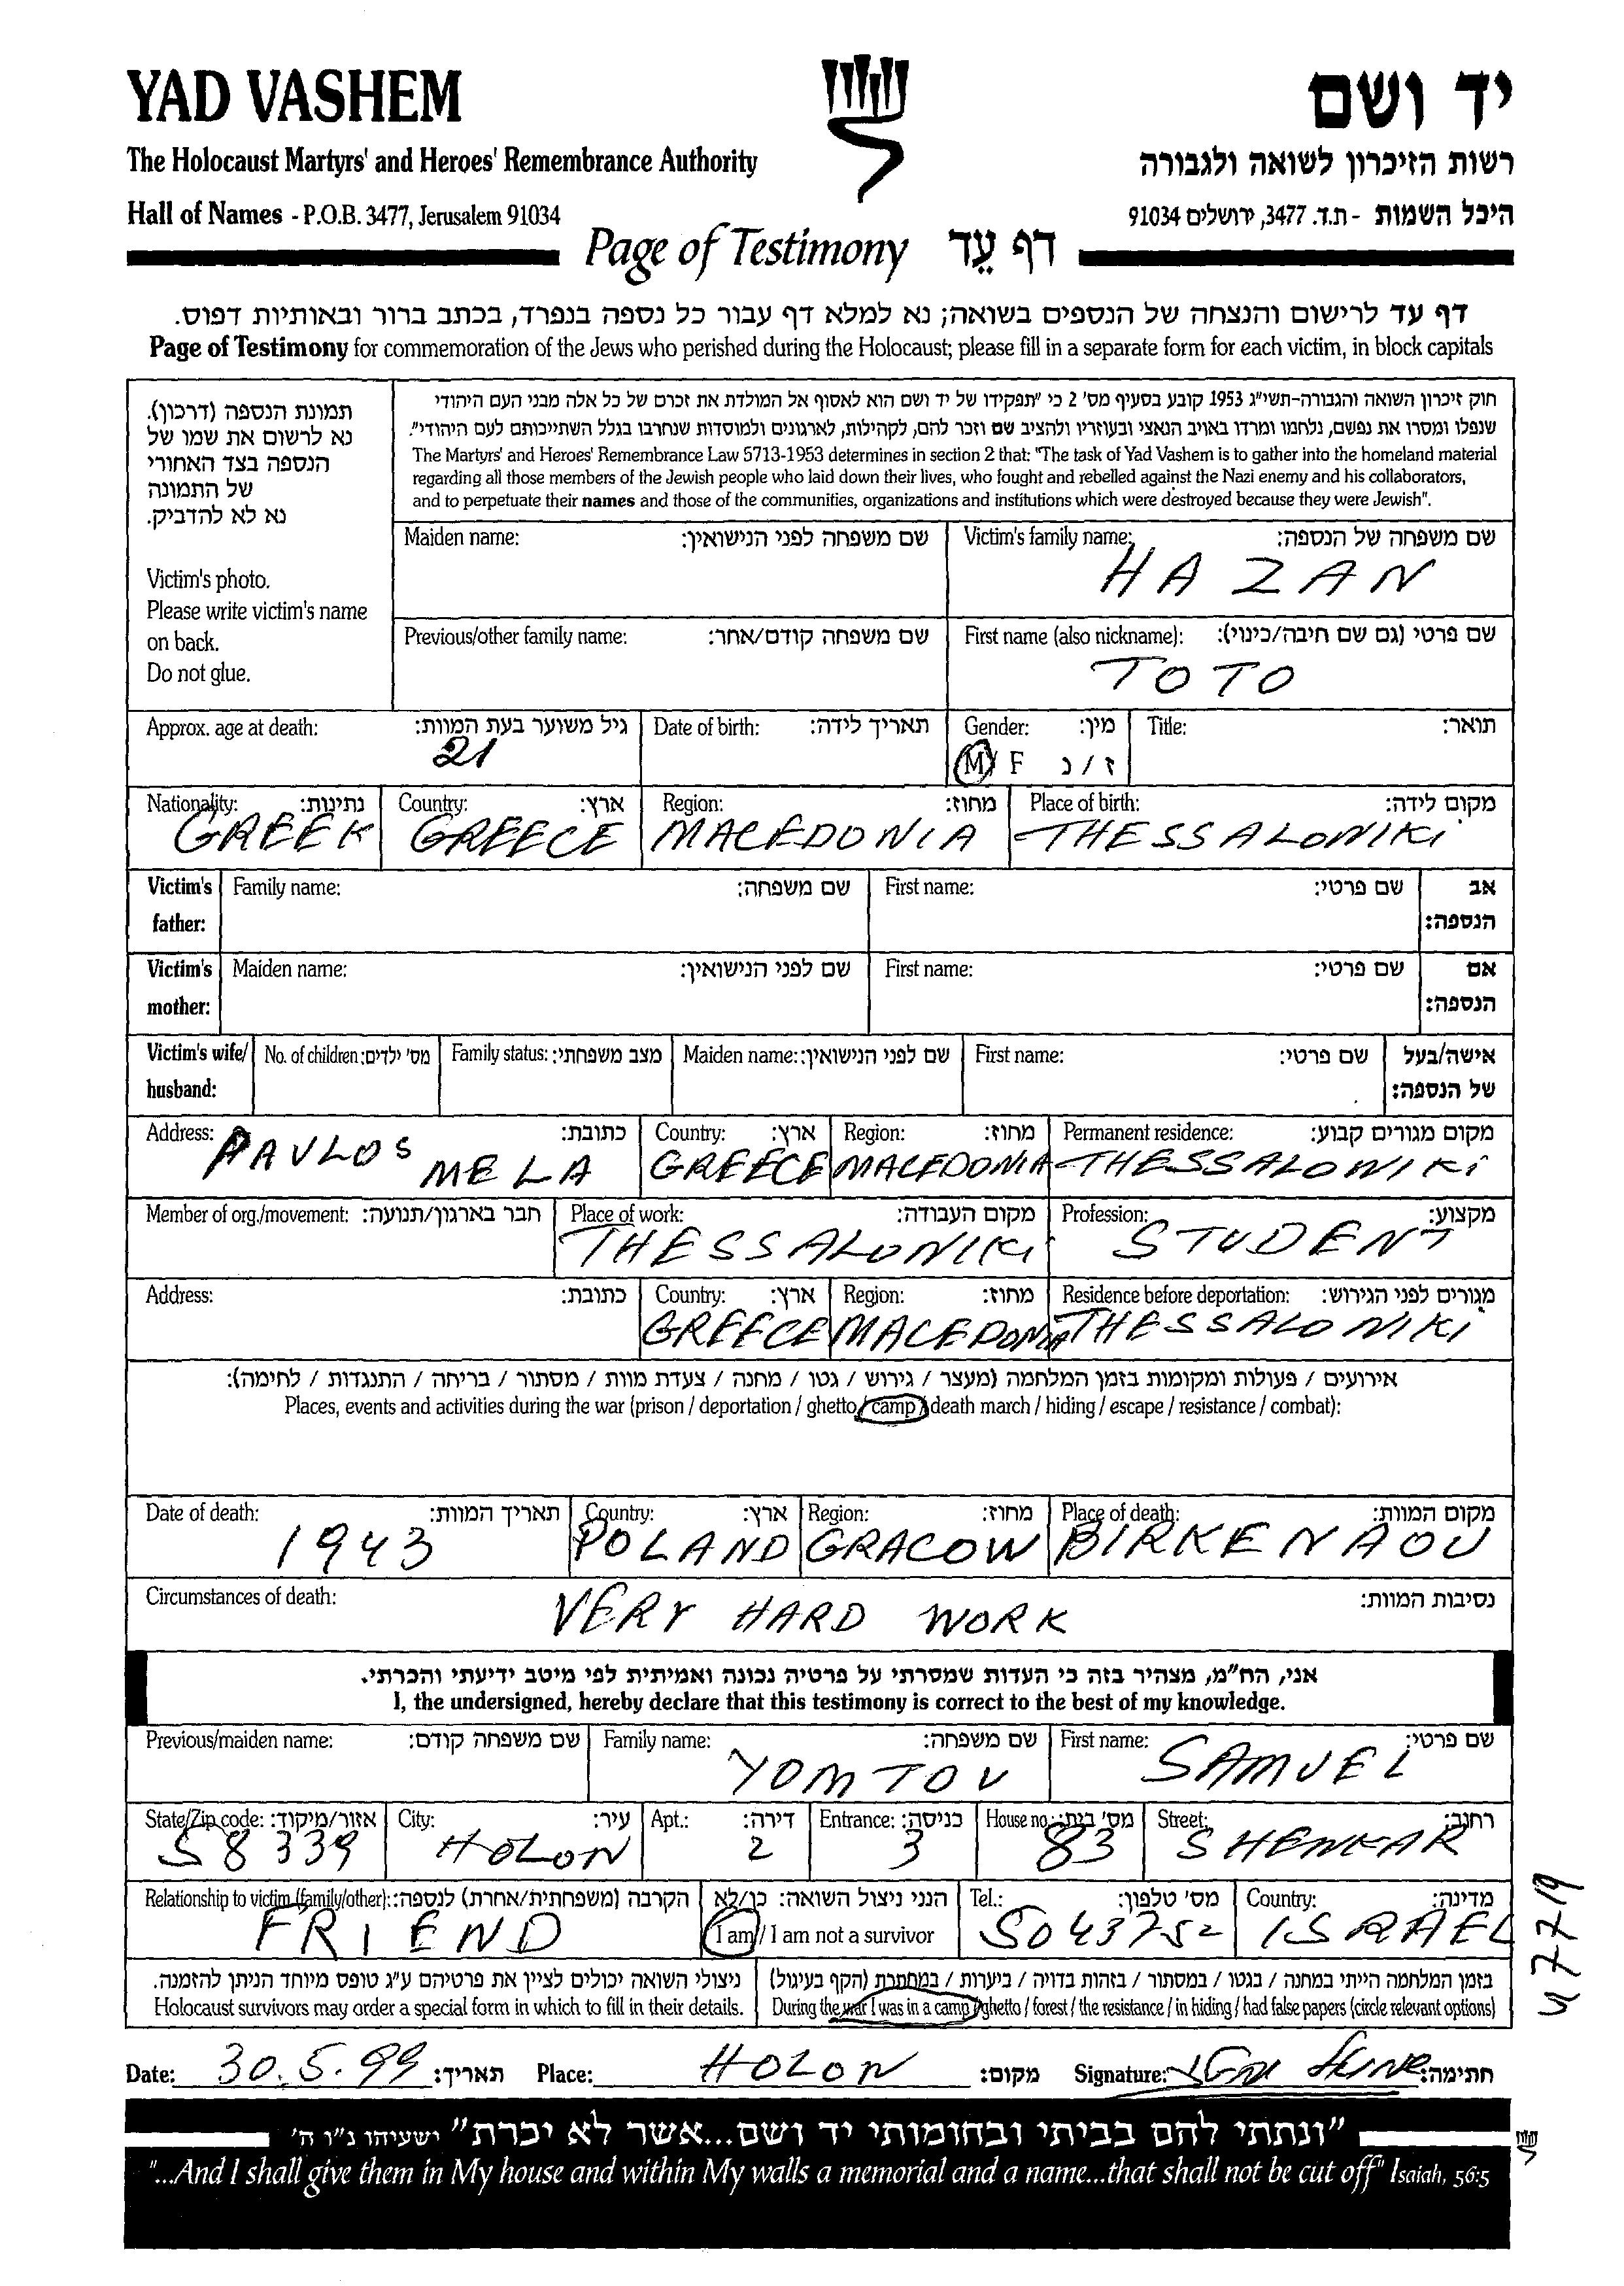 YAD VASHEM
יד ושם
The Holocaust Martyrs' and Heroes' Remembrance Authority
רשות הזיכרון לשואה ולגבורה
Hall of Names - P.O.B. 3477, Jerusalem 91034
היכל השמות - ת.ד. 3477, ירושלים 91034
Page of Testimony דף עֵד
דף עד לרישום והנצחה של הנספים בשואה; נא למלא דף עבור כל נספה בנפרד, בכתב ברור ובאותיות דפוס.
Page of Testimony for commemoration of the Jews who perished during the Holocaust; please fill in a separate form for each victim, in block capitals
תמונת הנספה (דרכון).
נא לרשום את שמו של
הנספה בצד האחורי
של התמונה
נא לא להדביק.
Victim's photo.
Please write victim's name
on back.
Do not glue.
חוק זיכרון השואה והגבורה-תשי"ג 1953 קובע בסעיף מס' 2 כי "תפקידו של יד ושם הוא לאסוף אל המולדת את זכרם של כל אלה מבני העם היהודי
שנפלו ומסרו את נפשם, נלחמו ומרדו באויב הנאצי ובעוזריו ולהציב שם וזכר להם, לקהילות, לארגונים ולמוסדות שנחרבו בגלל השתייכותם לעם היהודי".
The Martyrs' and Heroes' Remembrance Law 5713-1953 determines in section 2 that: "The task of Yad Vashem is to gather into the homeland material
regarding all those members of the Jewish people who laid down their lives, who fought and rebelled against the Nazi enemy and his collaborators,
and to perpetuate their names and those of the communities, organizations and institutions which were destroyed because they were Jewish".
Maiden name: שם משפחה לפני הנישואין:
Victim's family name: שם משפחה של הנספה:
HAZAN
Previous/other family name: שם משפחה קודם/אחר:
First name (also nickname): שם פרטי (גם שם חיבה/כינוי):
TOTO
Approx. age at death: גיל משוער בעת המוות:
21
Date of birth: תאריך לידה:
Gender: מין:
M/F ז/נ
Title: תואר:
Nationality: נתינות:
GREEK
Country: ארץ:
GREECE
Region: מחוז:
MACEDONIA
Place of birth: מקום לידה:
THESSALONIKi
Victim's father: Family name: שם משפחה: First name: שם פרטי: אב הנספה:
Victim's mother: Maiden name: שם לפני הנישואין: First name: שם פרטי: אם הנספה:
Victim's wife/husband: No. of children: מס' ילדים: Family status: מצב משפחתי: Maiden name: שם לפני הנישואין: First name: שם פרטי: אישה/בעל של הנספה:
Address: כתובת:
PAVLOS MELA
Country: ארץ:
GREECE
Region: מחוז:
MACEDONIA
Permanent residence: מקום מגורים קבוע:
THESSALONIKi
Member of org./movement: חבר בארגון/תנועה:
Place of work: מקום העבודה:
THESSALONIKi
Profession: מקצוע:
STUDENT
Address: כתובת:
Country: ארץ:
GREECE
Region: מחוז:
MACEDONIA
Residence before deportation: מגורים לפני הגירוש:
THESSALONIKi
אירועים / פעולות ומקומות בזמן המלחמה (מעצר / גירוש / גטו / מחנה / צעדת מוות / מסתור / בריחה / התנגדות / לחימה):
Places, events and activities during the war (prison / deportation / ghetto / camp / death march / hiding / escape / resistance / combat):
Date of death: תאריך המוות:
1943
Country: ארץ:
POLAND
Region: מחוז:
GRACOW
Place of death: מקום המוות:
BIRKENAOU
Circumstances of death: נסיבות המוות:
VERY HARD WORK
אני, הח"מ, מצהיר בזה כי העדות שמסרתי על פרטיה נכונה ואמיתית לפי מיטב ידיעתי והכרתי.
I, the undersigned, hereby declare that this testimony is correct to the best of my knowledge.
Previous/maiden name: שם משפחה קודם:
Family name: שם משפחה:
YOMTOV
First name: שם פרטי:
SAMUEL
State/Zip code: אזור/מיקוד:
58339
City: עיר:
HOLON
Apt.: דירה:
2
Entrance: כניסה:
3
House no.: מס' בית:
83
Street: רחוב:
SHENKAR
Relationship to victim (family/other): הקרבה (משפחתית/אחרת) לנספה:
FRIEND
הנני ניצול השואה: כן/לא
I am / I am not a survivor
Tel.: מס' טלפון:
5043752
Country: מדינה:
ISRAEL
ניצולי השואה יכולים לציין את פרטיהם ע"ג טופס מיוחד הניתן להזמנה.
Holocaust survivors may order a special form in which to fill in their details.
בזמן המלחמה הייתי במחנה / בגטו / במסתור / בזהות בדויה / ביערות / במחתרת (הקף בעיגול)
During the war I was in a camp / ghetto / forest / the resistance / in hiding / had false papers (circle relevant options)
Date: 30.5.99 תאריך: Place: HOLON מקום: Signature: חתימה:
"ונתתי להם בביתי ובחומותי יד ושם...אשר לא יכרת" ישעיהו נ"ו ה'
"...And I shall give them in My house and within My walls a memorial and a name...that shall not be cut off" Isaiah, 56:5